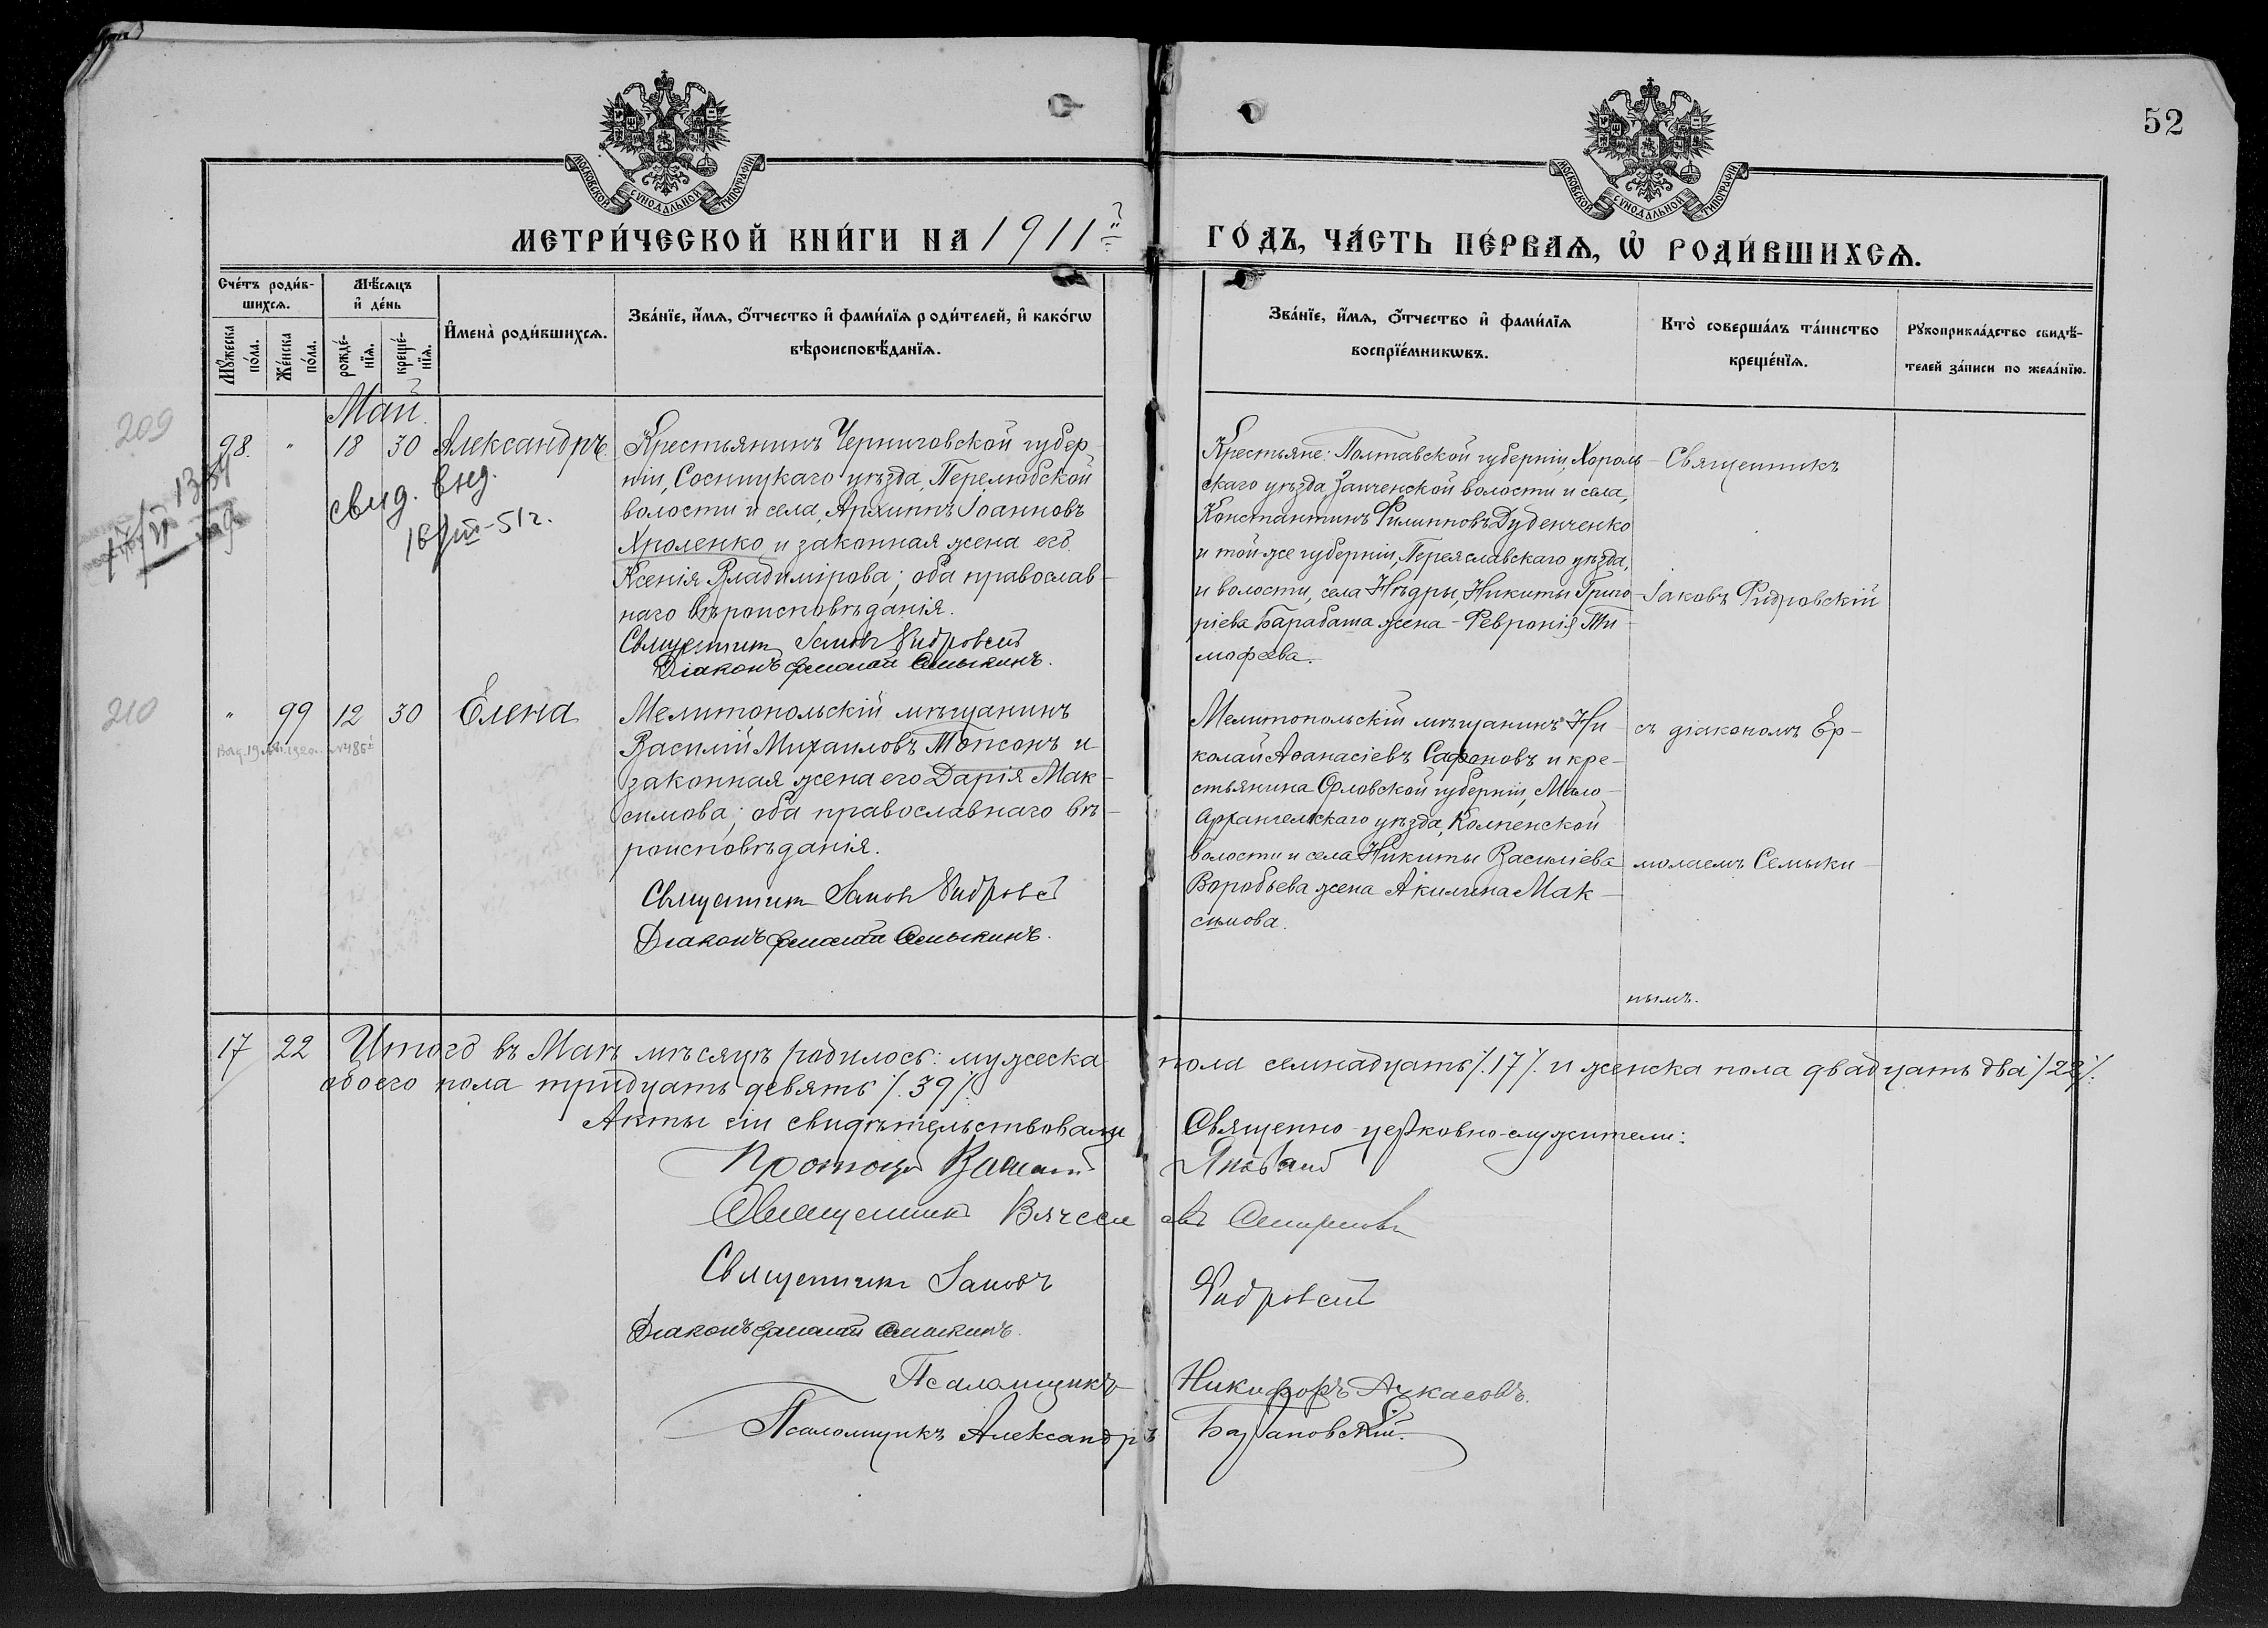 52
МОСКОВСКОЙ СѴНОДАЛЬНОЙ ТИПОГРАФІИ
МОСКОВСКОЙ СѴНОДАЛЬНОЙ ТИПОГРАФІИ
МЕТРИ́ЧЕСКОЙ КНИ́ГИ НА 1911й
ГО́ДЪ, ЧА́СТЬ ПЕ́РВАѦ, Ѡ҆ РОДИ́ВШИХСѦ.
Сче́тъ роди́в-
шихсѧ.
Мѣ́сѧцъ
и҆ де́нь
Мꙋ́жеска по́ла.
Же́нска по́ла.
рожде́-нїѧ.
креще́-нїѧ.
И҆мена̀ роди́вшихсѧ.
Зва́нїе, и҆́мѧ, ѻ҆́тчество и҆ фами́лїѧ роди́телей, и҆ како́гѡ
вѣроисповѣ́данїѧ.
Зва́нїе, и҆́мѧ, ѻ҆́тчество и҆ фами́лїѧ
воспрїе́мникѡвъ.
Кто̀ соверша́лъ та́инство
креще́нїѧ.
Рꙋкоприкла́дство свидѣ́-
телей за́писи по жела́нїю.
Май.
209
98. " 18 30 Александръ
свид. выд.
16/III-51г.
Крестьянинъ Черниговской губер-
ніи, Сосницкаго уѣзда, Перелюбской
волости и села, Архипъ Іоанновъ
Хроленко и законная жена его
Ксенія Владимірова; оба православ-
наго вѣроисповѣданія.
Священникъ Іаковъ Фидровскій
Діаконъ Ермолай Семыкинъ.
Крестьяне: Полтавской губерніи, Хороль-
скаго уѣзда, Заиченской волости и села,
Константинъ Филипповъ Дубенченко
и той-же губерніи, Переяславскаго уѣзда,
и волости, села Нѣдры, Никиты Григо-
ріева Барабаша жена - Февронія Ти-
мофеева.
Священникъ
Іаковъ Фидровскій
210
" 99 12 30 Елена
Мелитопольскій мѣщанинъ
Василій Михаиловъ Топсонъ и
законная жена его Дарія Мак-
симова; оба православнаго вѣ-
роисповѣданія.
Священникъ Іаковъ Фидровскій
Діаконъ Ермолай Семыкинъ.
Мелитопольскій мѣщанинъ Ни-
колай Аѳанасіевъ Сафоновъ и кре-
стьянина Орловской губерніи, Мало-
Архангельскаго уѣзда, Колпенской
волости и села Никиты Василіева
Воробьева жена Акилина Мак-
симова.
съ діакономъ Ер-
молаемъ Семыки-
нымъ.
17 22 Итого въ Маѣ мѣсяцѣ родилось: мужеска пола семнадцать /.17/. и женска пола двадцать два /22/.
обоего пола тридцать девять /.39/.
Акты сіи свидѣтельствовали Священно-церковно-служители:
Протоіерей Василій
Священникъ Вячеславъ Смирновъ
Священникъ Іаковъ Фидровскій
Діаконъ Ермолай Семыкинъ.
Псаломщикъ Никифоръ Ачкасовъ.
Псаломщикъ Александръ Базановскій.